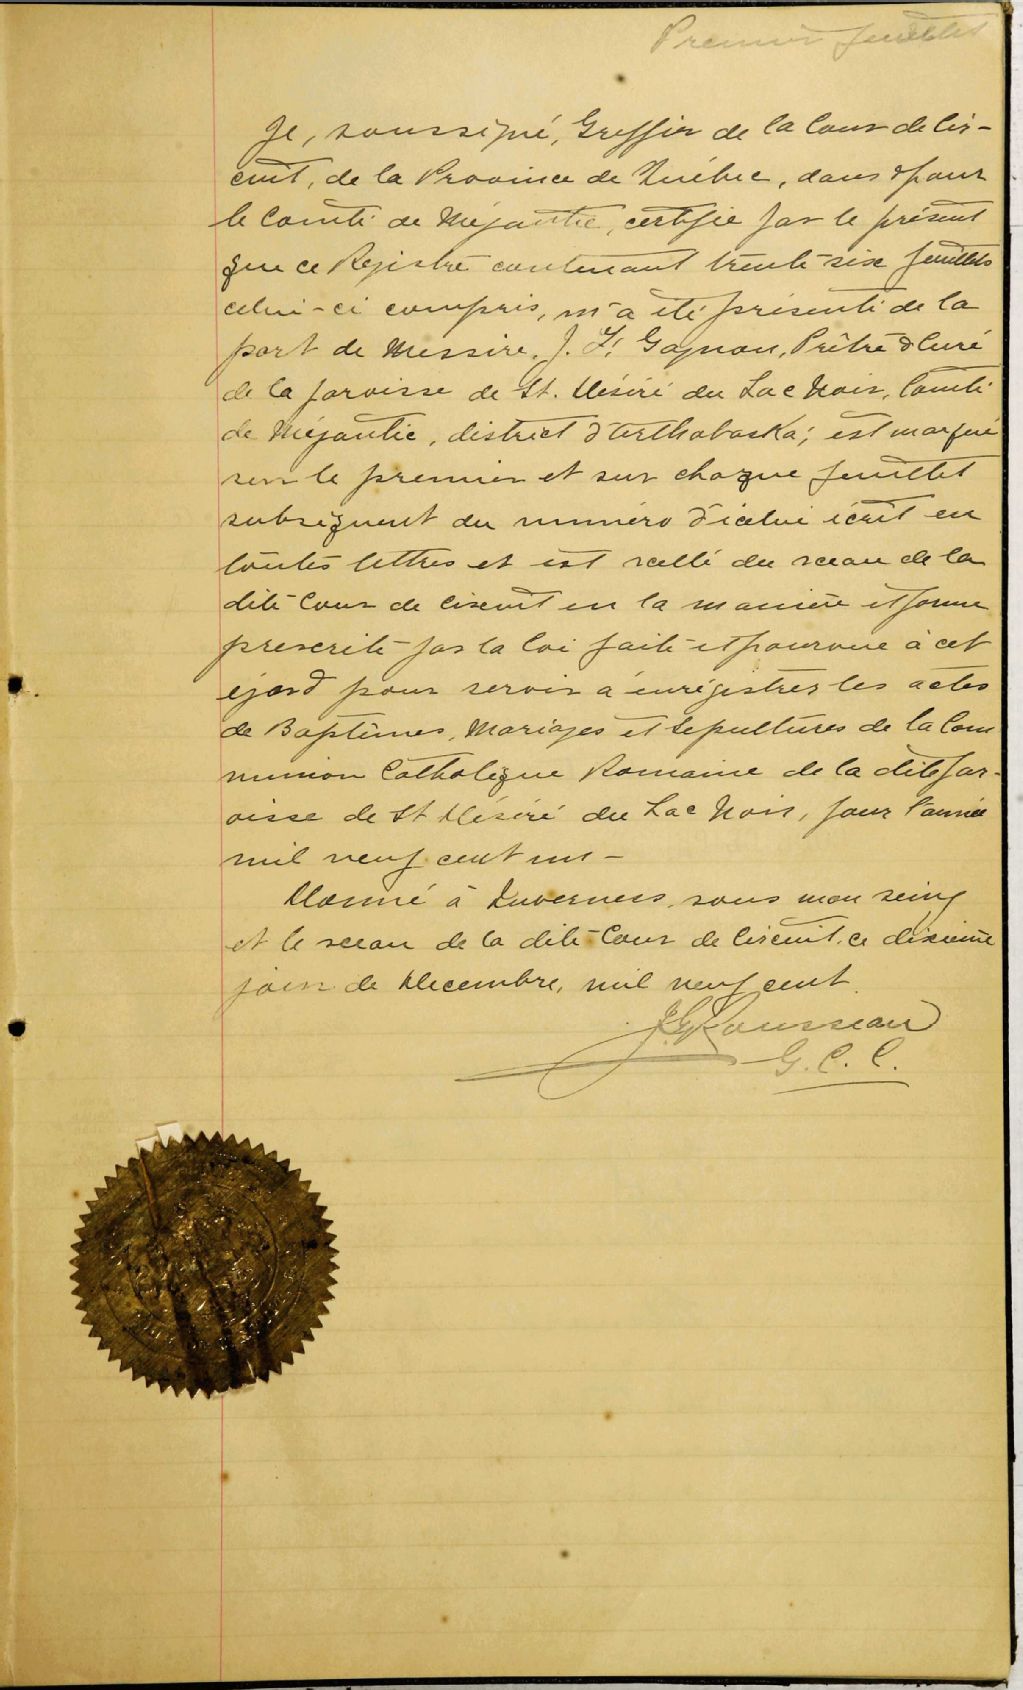 Premier feuillet
Je, soussigné, Greffier de la Cour de Cir-
cuit, de la Province de Québec, dans & pour
le Comté de Mégantic, certifie par le présent
que ce Registre contenant trente-six feuillets
celui-ci compris, m'a été présenté de la
part de Messire, J. F. Gagnon, Prêtre & Curé
de la paroisse de St. Désiré du Lac Noir, Comté
de Mégantic, district d'Arthabaska; est marqué
sur le premier et sur chaque feuillet
subséquent du numéro d'icelui écrit en
toutes lettres et est scellé du sceau de la
dite Cour de Circuit en la manière et forme
prescrite par la loi faite et pourvue à cet
égard pour servir à enrégistrer les actes
de Baptêmes, Mariages et Sépultures de la Com
munion Catholique Romaine de la dite par-
oisse de St Désiré du Lac Noir, pour l'année
mil neuf cent un -
Donné à Inverness, sous mon seing
et le sceau de la dite Cour de Circuit, ce dixième
jour de Décembre, mil neuf cent.
Rousseau
G. C. C.